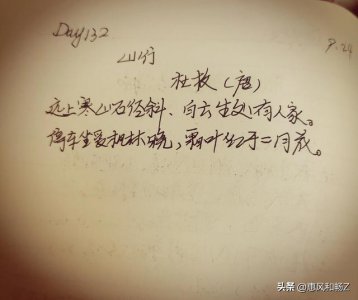 Day132
P.24
山行
杜牧（唐）
远上寒山石径斜、白云生处有人家。
停车坐爱枫林晚，霜叶红于二月花。
头条 @惠风和畅Z